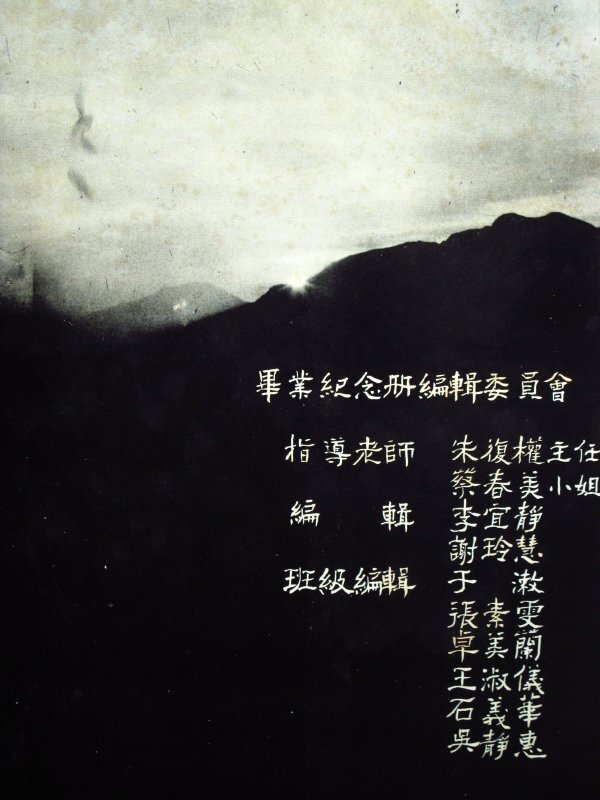 畢業紀念册編輯委員會
指導老師 朱復權主任
蔡春美小姐
編輯 李宜靜
謝玲慧
班級編輯 于漱
張素雯
卓美蘭
王淑儀
石義華
吳靜惠